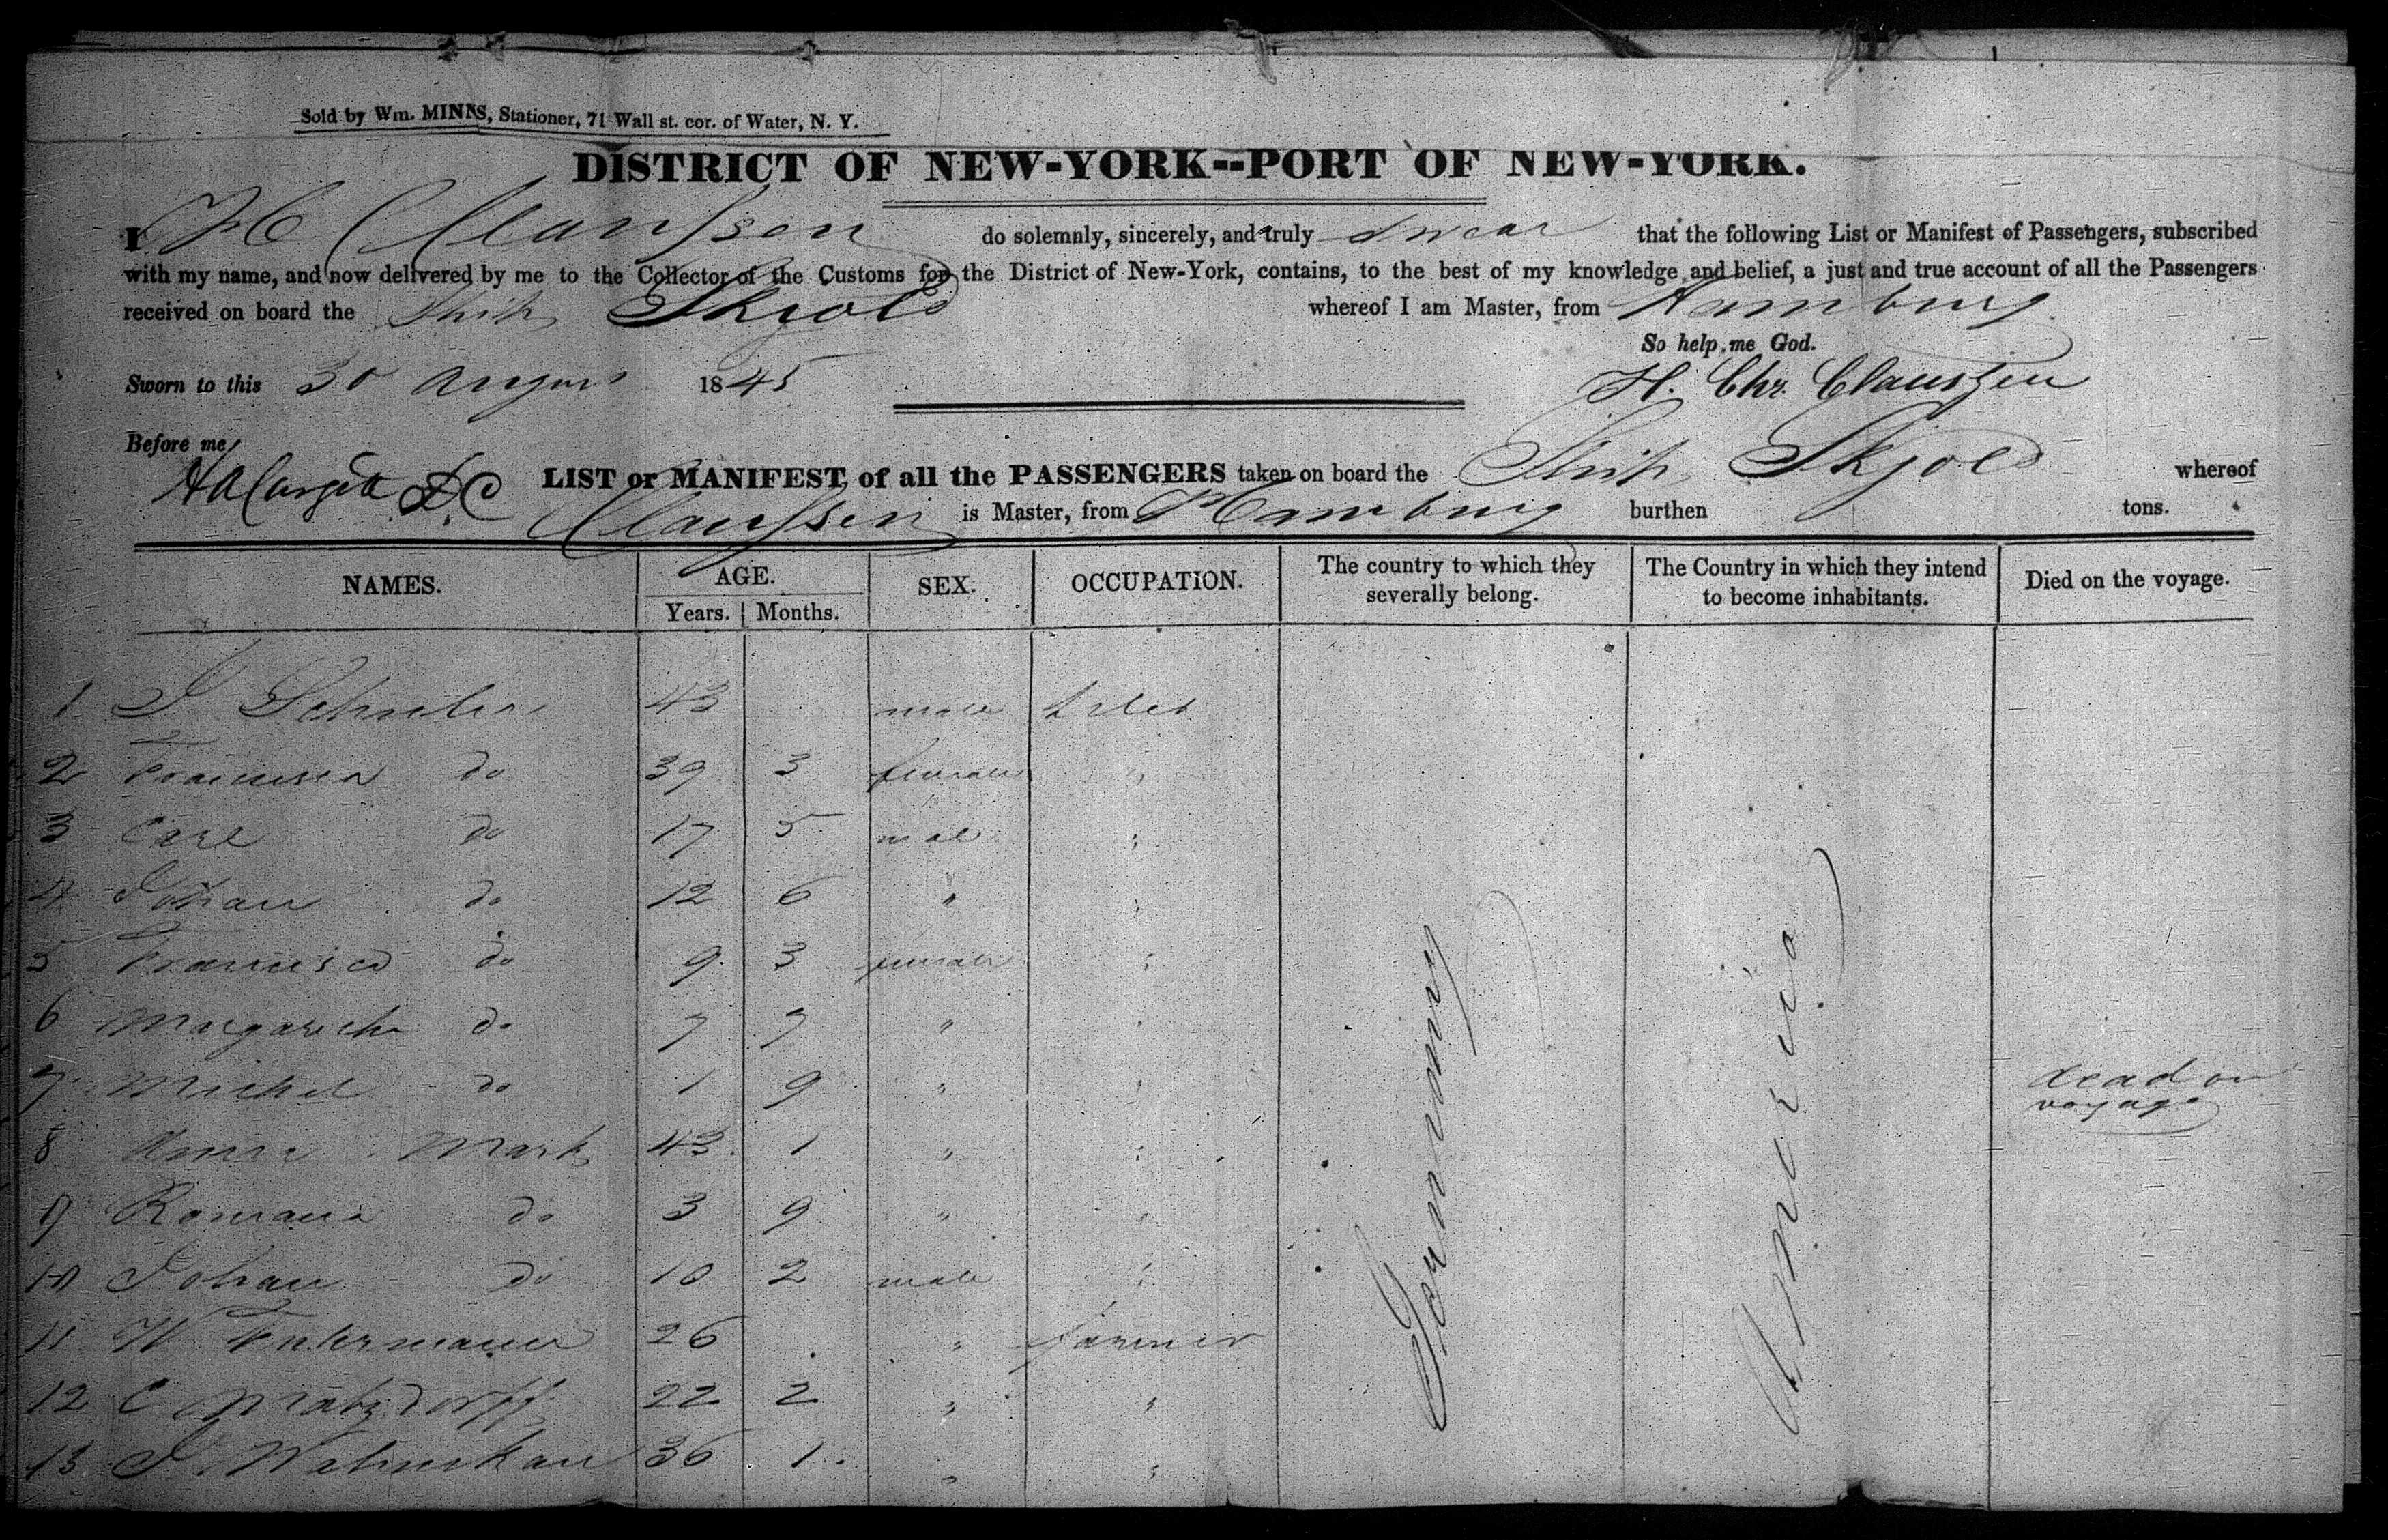 Sold by Wm. MINNS, Stationer, 71 Wall st. cor. of Water, N. Y.
DISTRICT OF NEW-YORK--PORT OF NEW-YORK.
I H C Claussen do solemnly, sincerely, and truly swear that the following List or Manifest of Passengers, subscribed
with my name, and now delivered by me to the Collector of the Customs for the District of New-York, contains, to the best of my knowledge and belief, a just and true account of all the Passengers
received on board the Ship Skjold whereof I am Master, from Hamburg
So help me God.
Sworn to this 30 August 1845 H. Chr. Claussen
Before me
D.C LIST or MANIFEST of all the PASSENGERS taken on board the Ship Skjold whereof
Claussen is Master, from Hamburg burthen tons.
NAMES. AGE. Years. Months. SEX. OCCUPATION. The country to which they severally belong. The Country in which they intend to become inhabitants. Died on the voyage.
1 J 43 male
2 Francisca do 39 3 female "
3 Carl do 17 5 male "
4 Johan do 12 6 " "
5 Francisca do 9 3 female "
6 Margaretha do 7 7 " "
7 Michel do 1 9 " " dead on voyage
8 Anna Mark 43 1 " "
9 Romana do 3 9 " "
10 Johan do 10 2 male "
11 W 26 " farmer
12 C Matzdorff 22 2 " "
13 J 36 1 " "
Germany
America